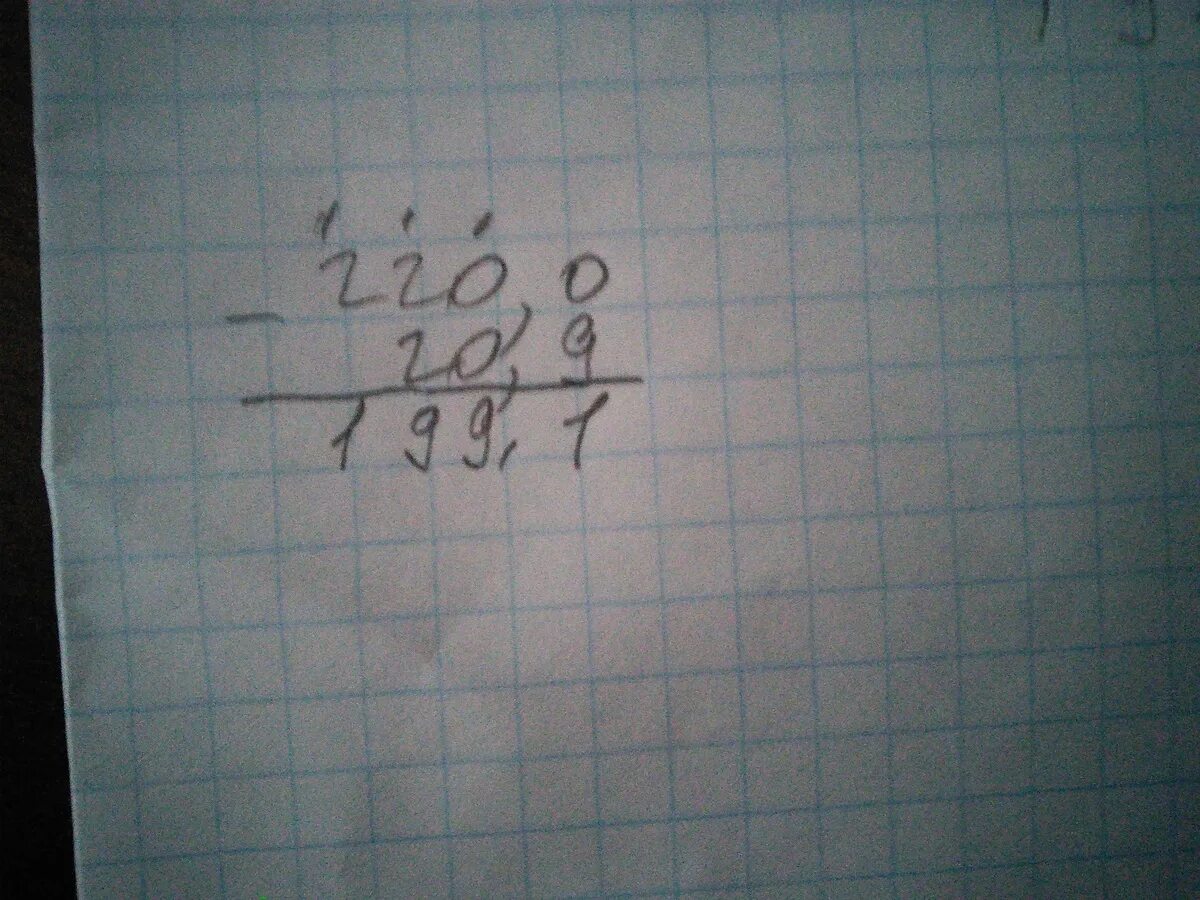 220,0
- 20,9
199,1